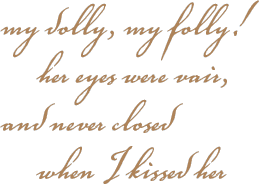 my dolly, my folly!
her eyes were vair,
and never closed
when I kissed her